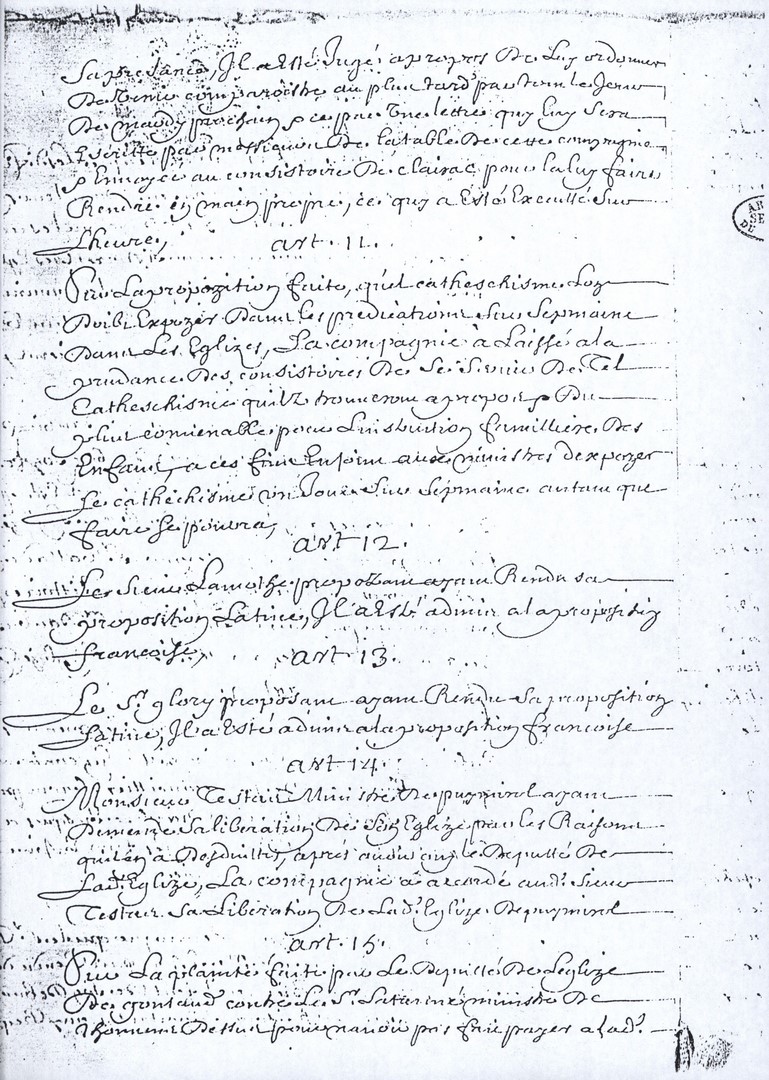 Sa presance, Il a Esté Jugé apropos De Luy ordonner
De Venir comparoistre au plus tard par tout le Jeur
De mardy prochain & ce par Une lettre quy luy Sera
Escritte par Messieurs De la table De cette compagnie
& Envoyée au consistoire De clairac pour la luy faire
Rendre En main propre, ce quy a Esté Executté Sur
Lheure,
art. 11.
Sur La propozition faite, quel catheschisme Lon
Doibt Expozer Dans les predications Sur Sepmaine
Dans Les Eglizes, La compagnie à Laissé a la
prudance Des consistoires De Se Servir De Tel
Catheschisme quilz trouveront apropos & Du
plus convenable pour Linstruction familliere Des
Enfans, a ces fins Enjoint aux ministres dexpozer
Le cathechisme un Jour Sur Sepmaine autant que
faire Se pourra,
art 12.
Le Sieur Lamothe propozant ayant Rendu sa
proposition Latine, Il a Esté admis a la proposition
francoise,
art 13.
Le Sr. glory proposant ayant Rendu Sa proposition
Latine, Il a Esté admis a la proposition francoise
art 14.
Monsieur Testas Ministre De puymirol ayant
Demandé Sa liberation De Son Eglize pour les Raisons
quil en à Desduittes, aprés avoir ouy le Deputté De
Lad. Eglize, La compagnie a acordé aud. Sieur
Testas Sa Liberation De Lad. Eglize De puymirol
art. 15.
Sur La plainte faite par Le Deputté De Leglize
De gontaud contre Le Sr. ministre De
Thonneins Dessus pour navoir pas fait payer a lad.